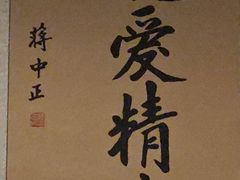 愛精
蔣中正